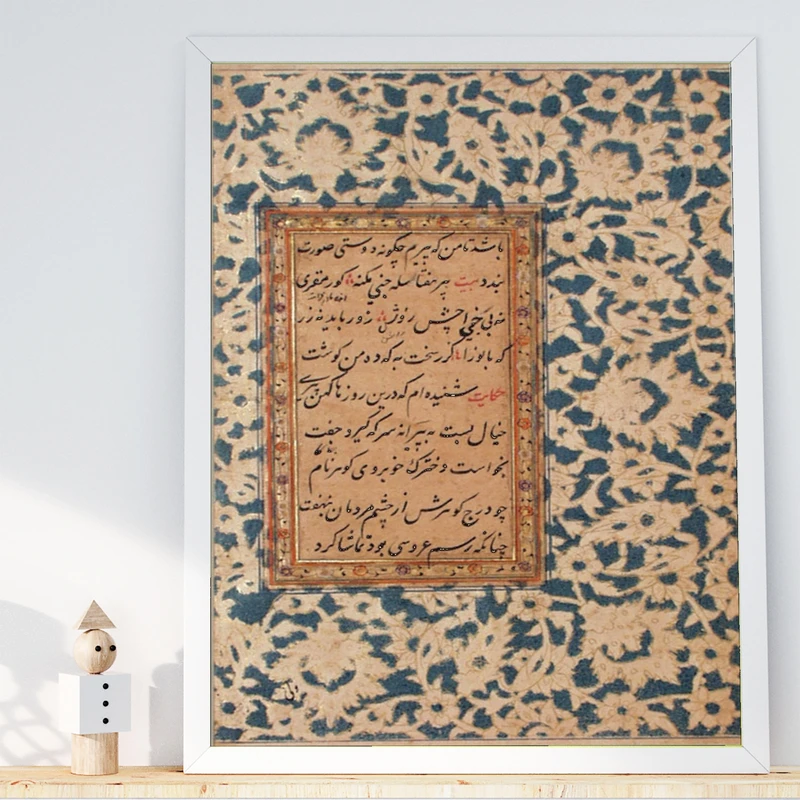 باشد تا من که پیرم چگونه دوستی صورت
بندد بیت پیر هفتا سله جنی میکنه کور مقری
روژ زور باید نه زر
که بانو را گزر سخت به که ده من گوشت
حکایت شنیده ام که درین روزها کهن پیری
خیال بست به پیرانه سر که گیرد جفت
بخواست دخترکی خوبروی گوهر نام
چو درج گوهرش از چشم مردمان بنهفت
چنانکه رسم عروسی بود تماشا کرد